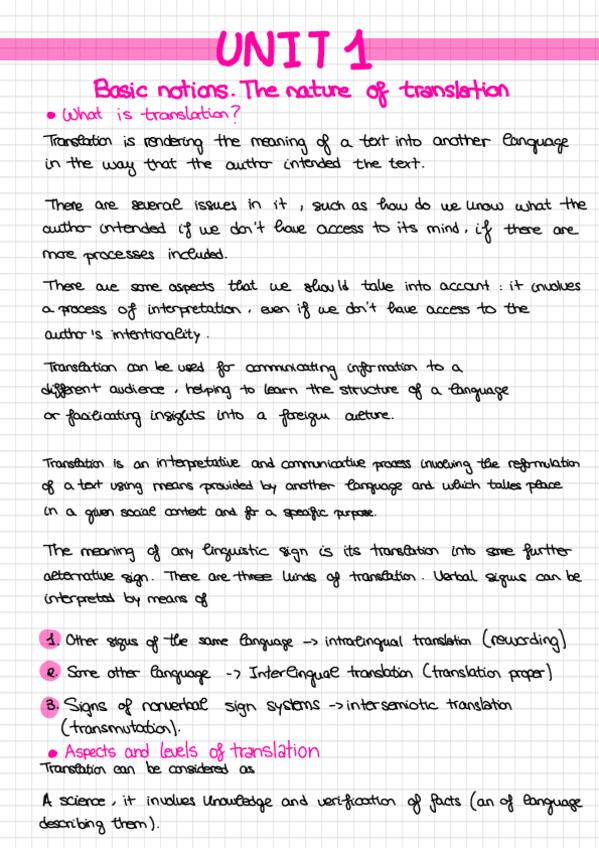 UNIT 1
Basic notions. The nature of translation
• What is translation?
Translation is rendering the meaning of a text into another language
in the way that the author intended the text.
There are several issues in it, such as how do we know what the
author intended if we don't have access to its mind, if there are
more processes included.
There are some aspects that we should take into account: it involves
a process of interpretation, even if we don't have access to the
author's intentionality.
Translation can be used for communicating information to a
different audience, helping to learn the structure of a language
or facilitating insights into a foreign culture.
Translation is an interpretative and communicative process involving the reformulation
of a text using means provided by another language and which takes place
in a given social context and for a specific purpose.
The meaning of any linguistic sign is its translation into some further
alternative sign. There are three kinds of translation. Verbal signs can be
interpreted by means of
1. Other signs of the same language -> intralingual translation (rewording)
2. Some other language -> Interlingual translation (translation proper)
3. Signs of nonverbal sign systems -> intersemiotic translation
(transmutation).
• Aspects and levels of translation
Translation can be considered as
A science, it involves knowledge and verification of facts (an of language
describing them).